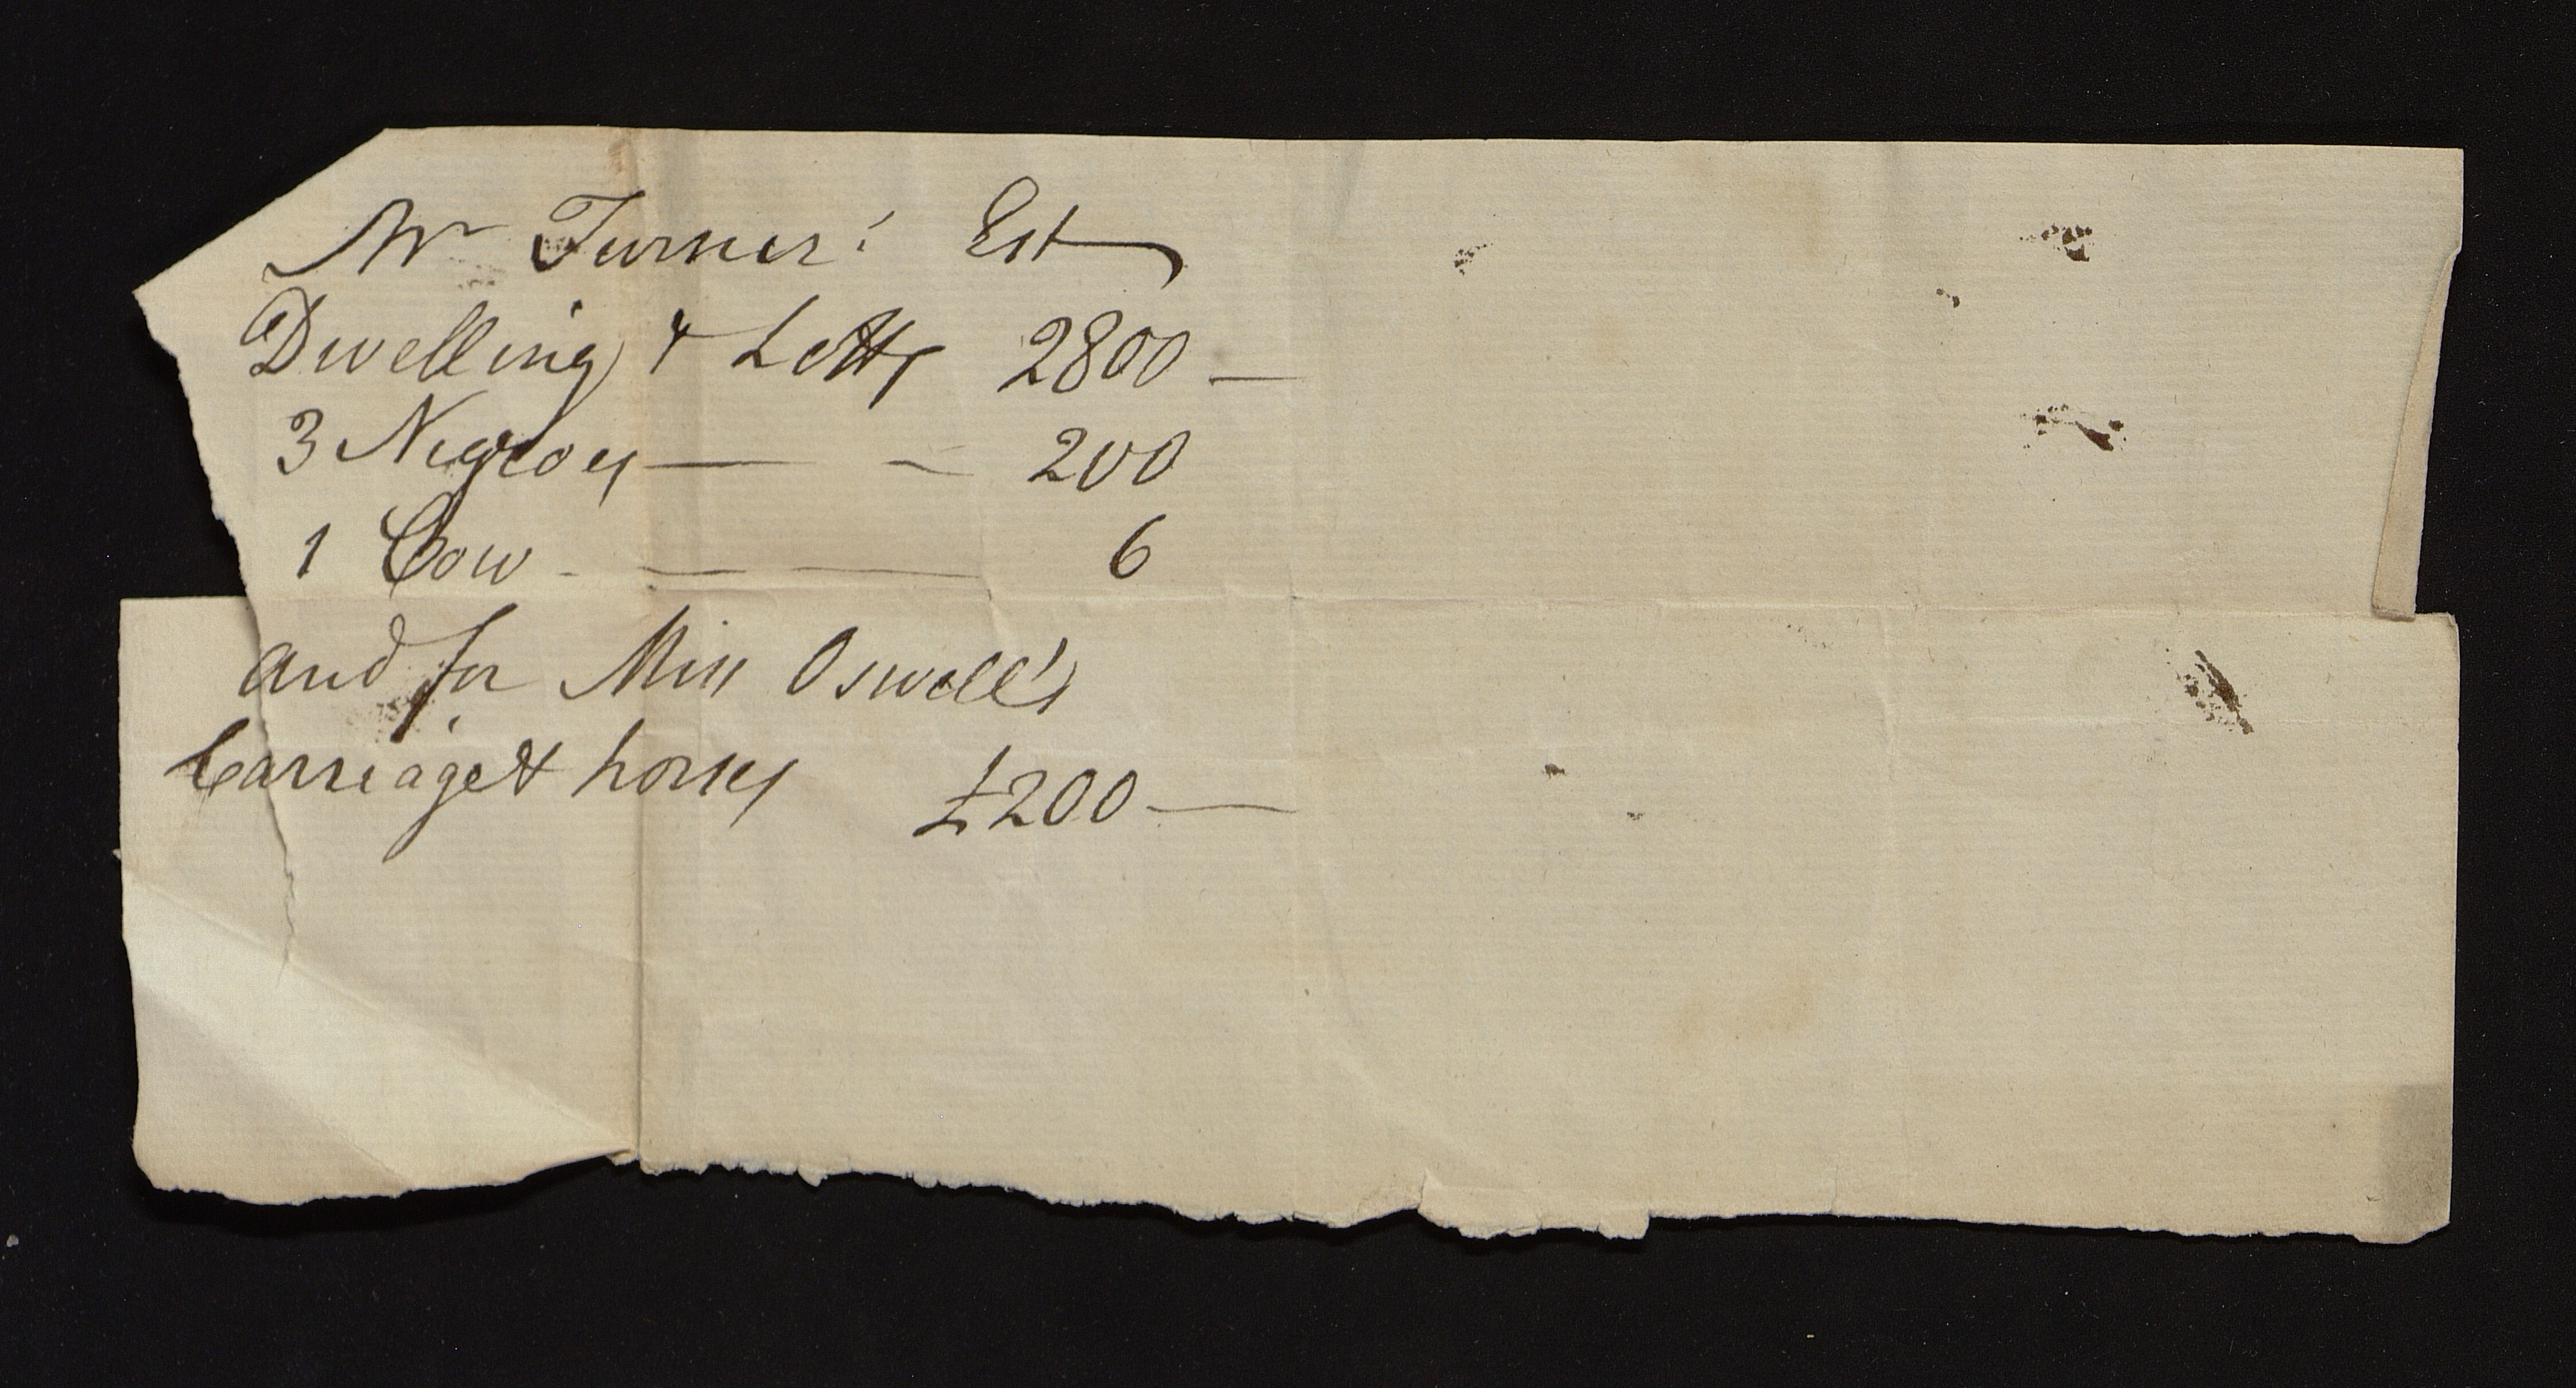 Mr Turner's Est
Dwelling & Lotts 2800 —
3 Negroes — – 200
1 Cow - — — 6
and for Miss Oswell's
Carriage & horses £200 —